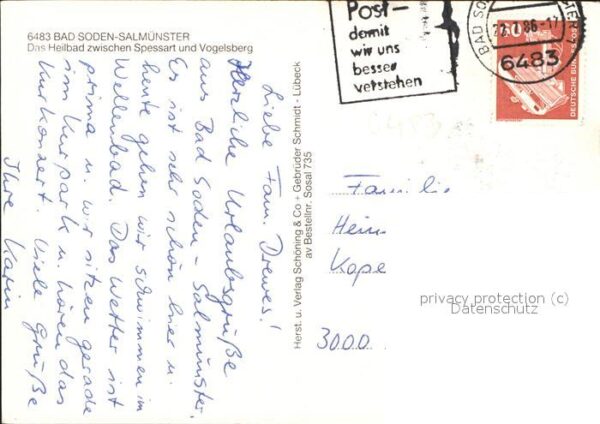 6483 BAD SODEN-SALMÜNSTER
Das Heilbad zwischen Spessart und Vogelsberg
Liebe Fam. Drewes!
Herzliche Urlaubsgrüße
aus Bad Soden-Salmünster
Es ist sehr schön hier u.
heute gehen wir schwimmen im
Wellenbad. Das Wetter ist
prima u. wir sitzen gerade
im Kurpark u. hören das
Kurkonzert. Viele Grüße
Ihre Karin
Herst. u. Verlag Schöning & Co + Gebrüder Schmidt · Lübeck
av Bestellnr. Sosal 735
Post-
damit
wir uns
besser
verstehen
BAD SO
6483
60
DEUTSCHE BUNDESPOST
6483
Familie
Hein
Kope
3000
privacy protection (c)
Datenschutz